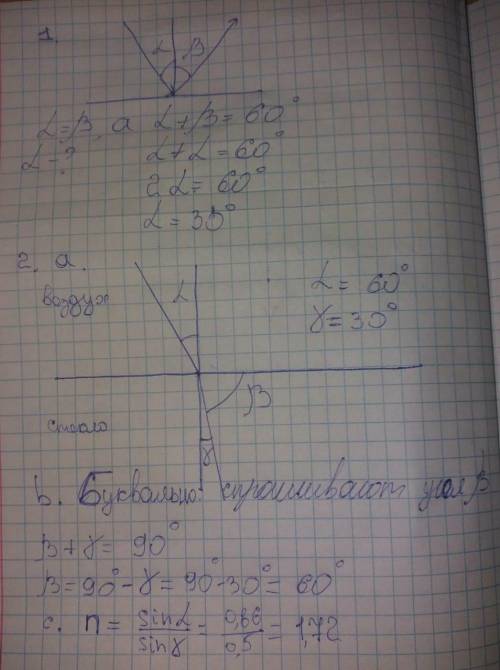 1.
α β
α=β, а α+β=60°
α-?
α+α=60°
2α=60°
α=30°
2. а.
воздух
α
α= 60°
γ=30°
β
стекло
γ
b. Буквально спрашивают угол β
β+γ= 90°
β=90°-γ=90°-30°= 60°
c. n= sinα/sinγ = 0,86/0,5 = 1,72